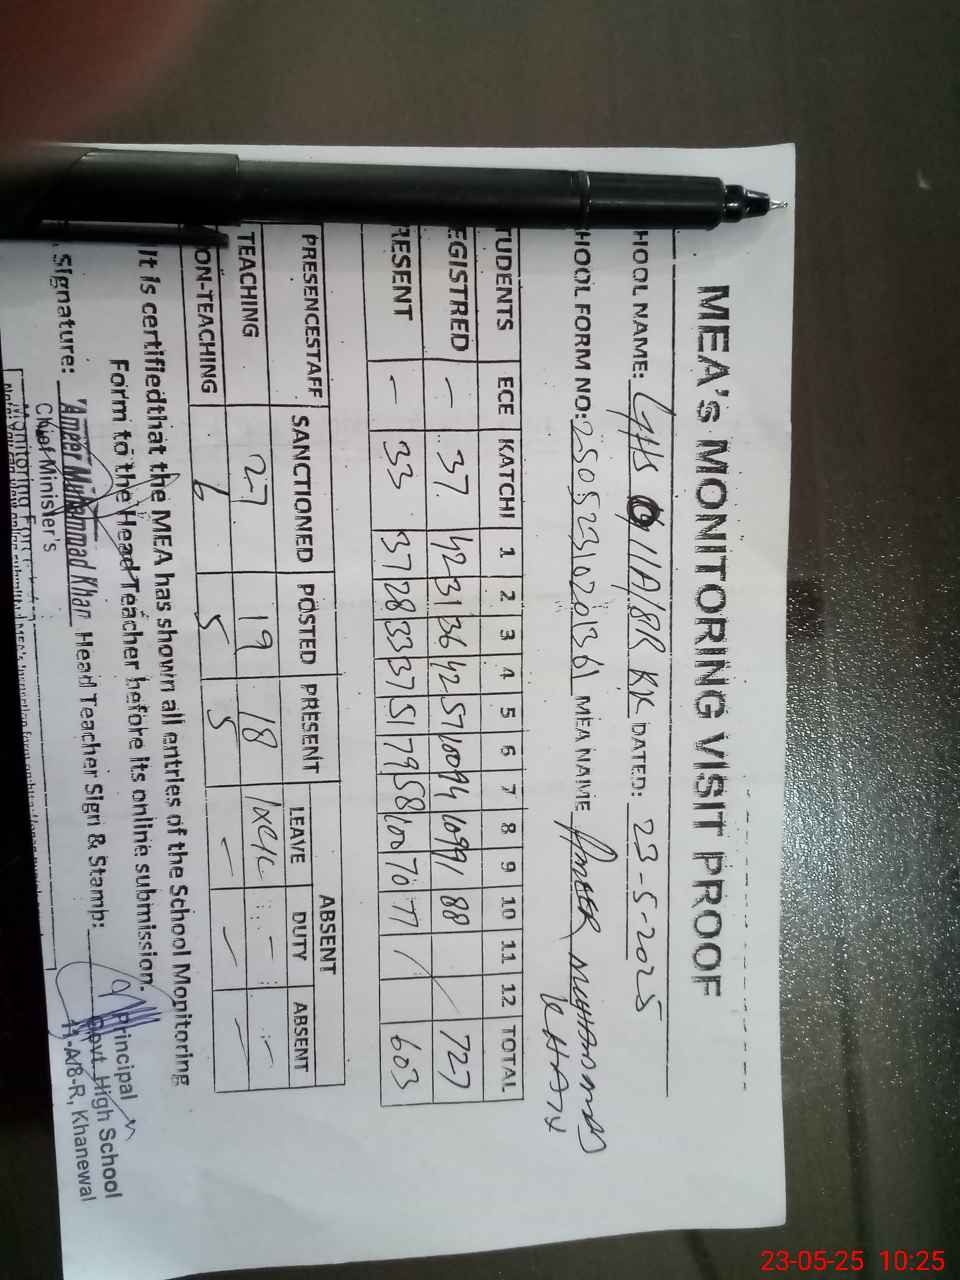 MEA's MONITORING VISIT PROOF
HOOL NAME: GHS 11A/8R KK DATED: 23-5-2025
HOOL FORM NO: 25052310201361 MEA NAME AMEER MUHAMMAD
KHAN
TUDENTS ECE KATCHI 1 2 3 4 5 6 7 8 9 10 11 12 TOTAL
EGISTRED - 37 42 31 36 42 57 100 94 109 91 88 / 727
RESENT - 33 37 28 33 37 51 79 58 100 70 77 / 603
PRESENCESTAFF SANCTIONED POSTED PRESENT ABSENT
LEAVE DUTY ABSENT
TEACHING 27 19 18 1xC/L - -
ON-TEACHING 6 5 5 - - -
It is certifiedthat the MEA has shown all entries of the School Monitoring
Form to the Head Teacher before its online submission.
Signature: Ameer Muhammad Khan Head Teacher Sign & Stamp:
Chief Minister's
Monitoring Force
Principal
Govt. High School
11-A/8-R, Khanewal
23-05-25 10:25